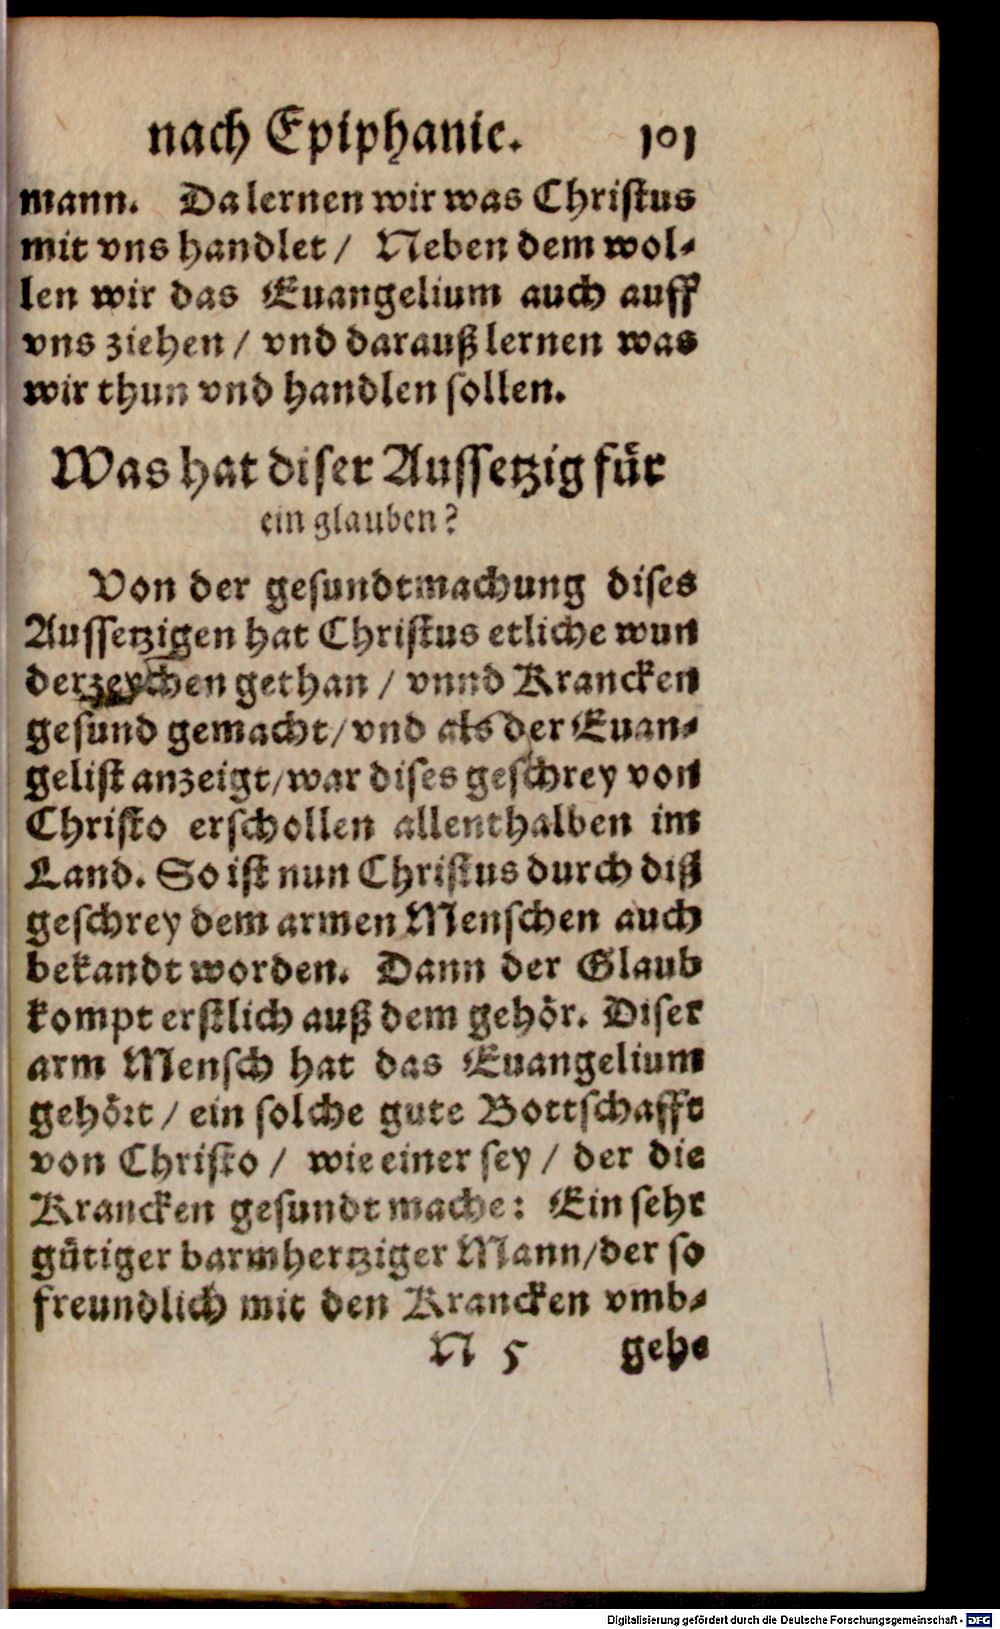 nach Epiphanie. 101
mann. Da lernen wir was Christus
mit vns handlet / Neben dem wol-
len wir das Euangelium auch auff
vns ziehen / vnd darauß lernen was
wir thun vnd handlen sollen.
Was hat diser Aussetzig für
ein glauben?
Von der gesundtmachung dises
Aussetzigen hat Christus etliche wun
derzeychen gethan / vnnd Krancken
gesund gemacht / vnd als der Euan-
gelist anzeigt / war dises geschrey von
Christo erschollen allenthalben im
Land. So ist nun Christus durch diß
geschrey dem armen Menschen auch
bekandt worden. Dann der Glaub
kompt erstlich auß dem gehör. Diser
arm Mensch hat das Euangelium
gehört / ein solche gute Bottschafft
von Christo / wie einer sey / der die
Krancken gesundt mache: Ein sehr
gütiger barmhertziger Mann / der so
freundlich mit den Krancken vmb-
N 5 gehe
Digitalisierung gefördert durch die Deutsche Forschungsgemeinschaft - DFG